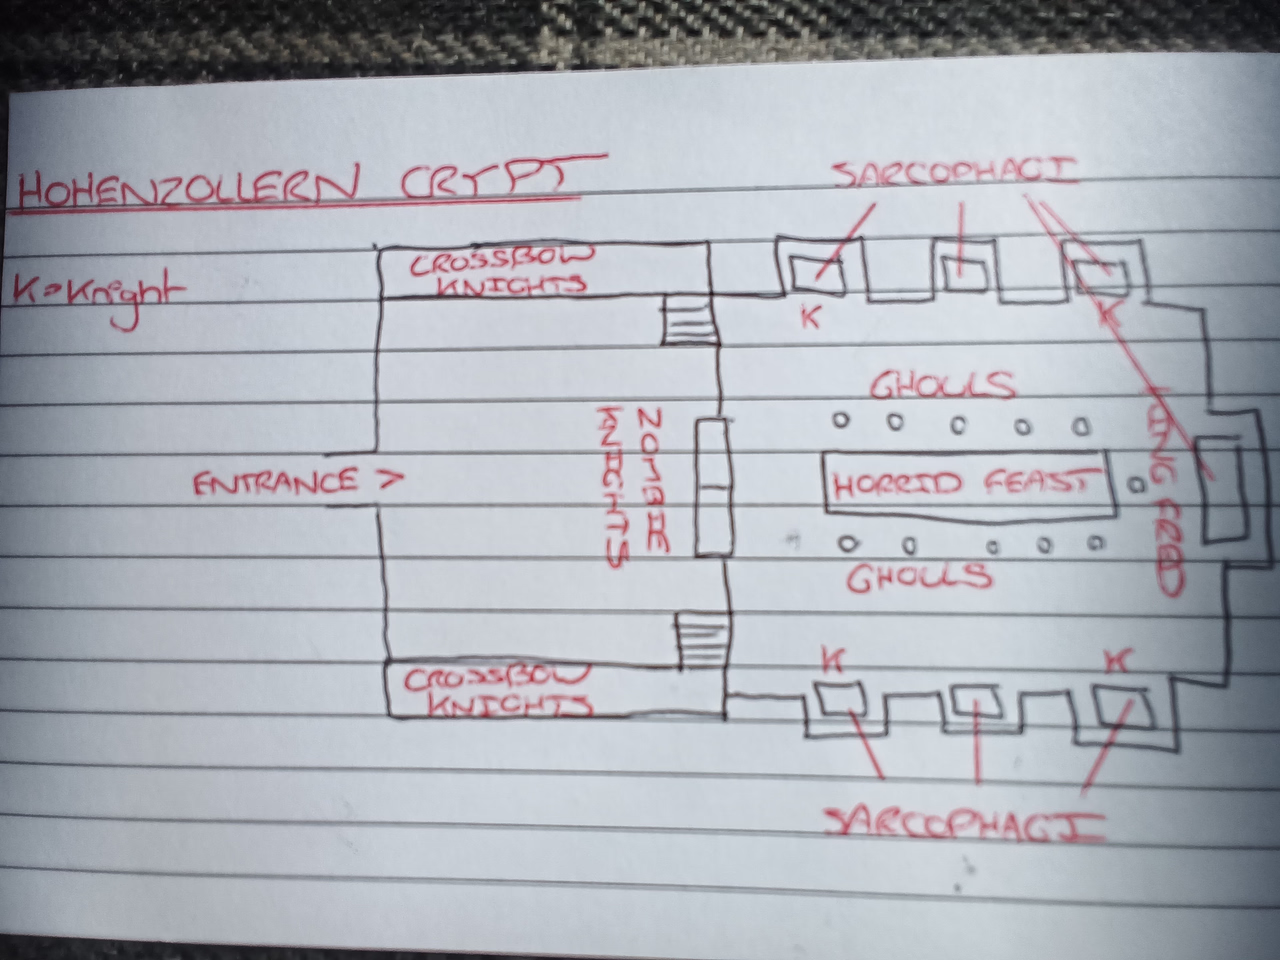 HOHENZOLLERN CRYPT
SARCOPHAGI
K=Knight
CROSSBOW
KNIGHTS
K
K
GHOULS
ZOMBIE
KNIGHTS
KING FRED
ENTRANCE >
HORRID FEAST
GHOULS
K
K
CROSSBOW
KNIGHTS
SARCOPHAGI